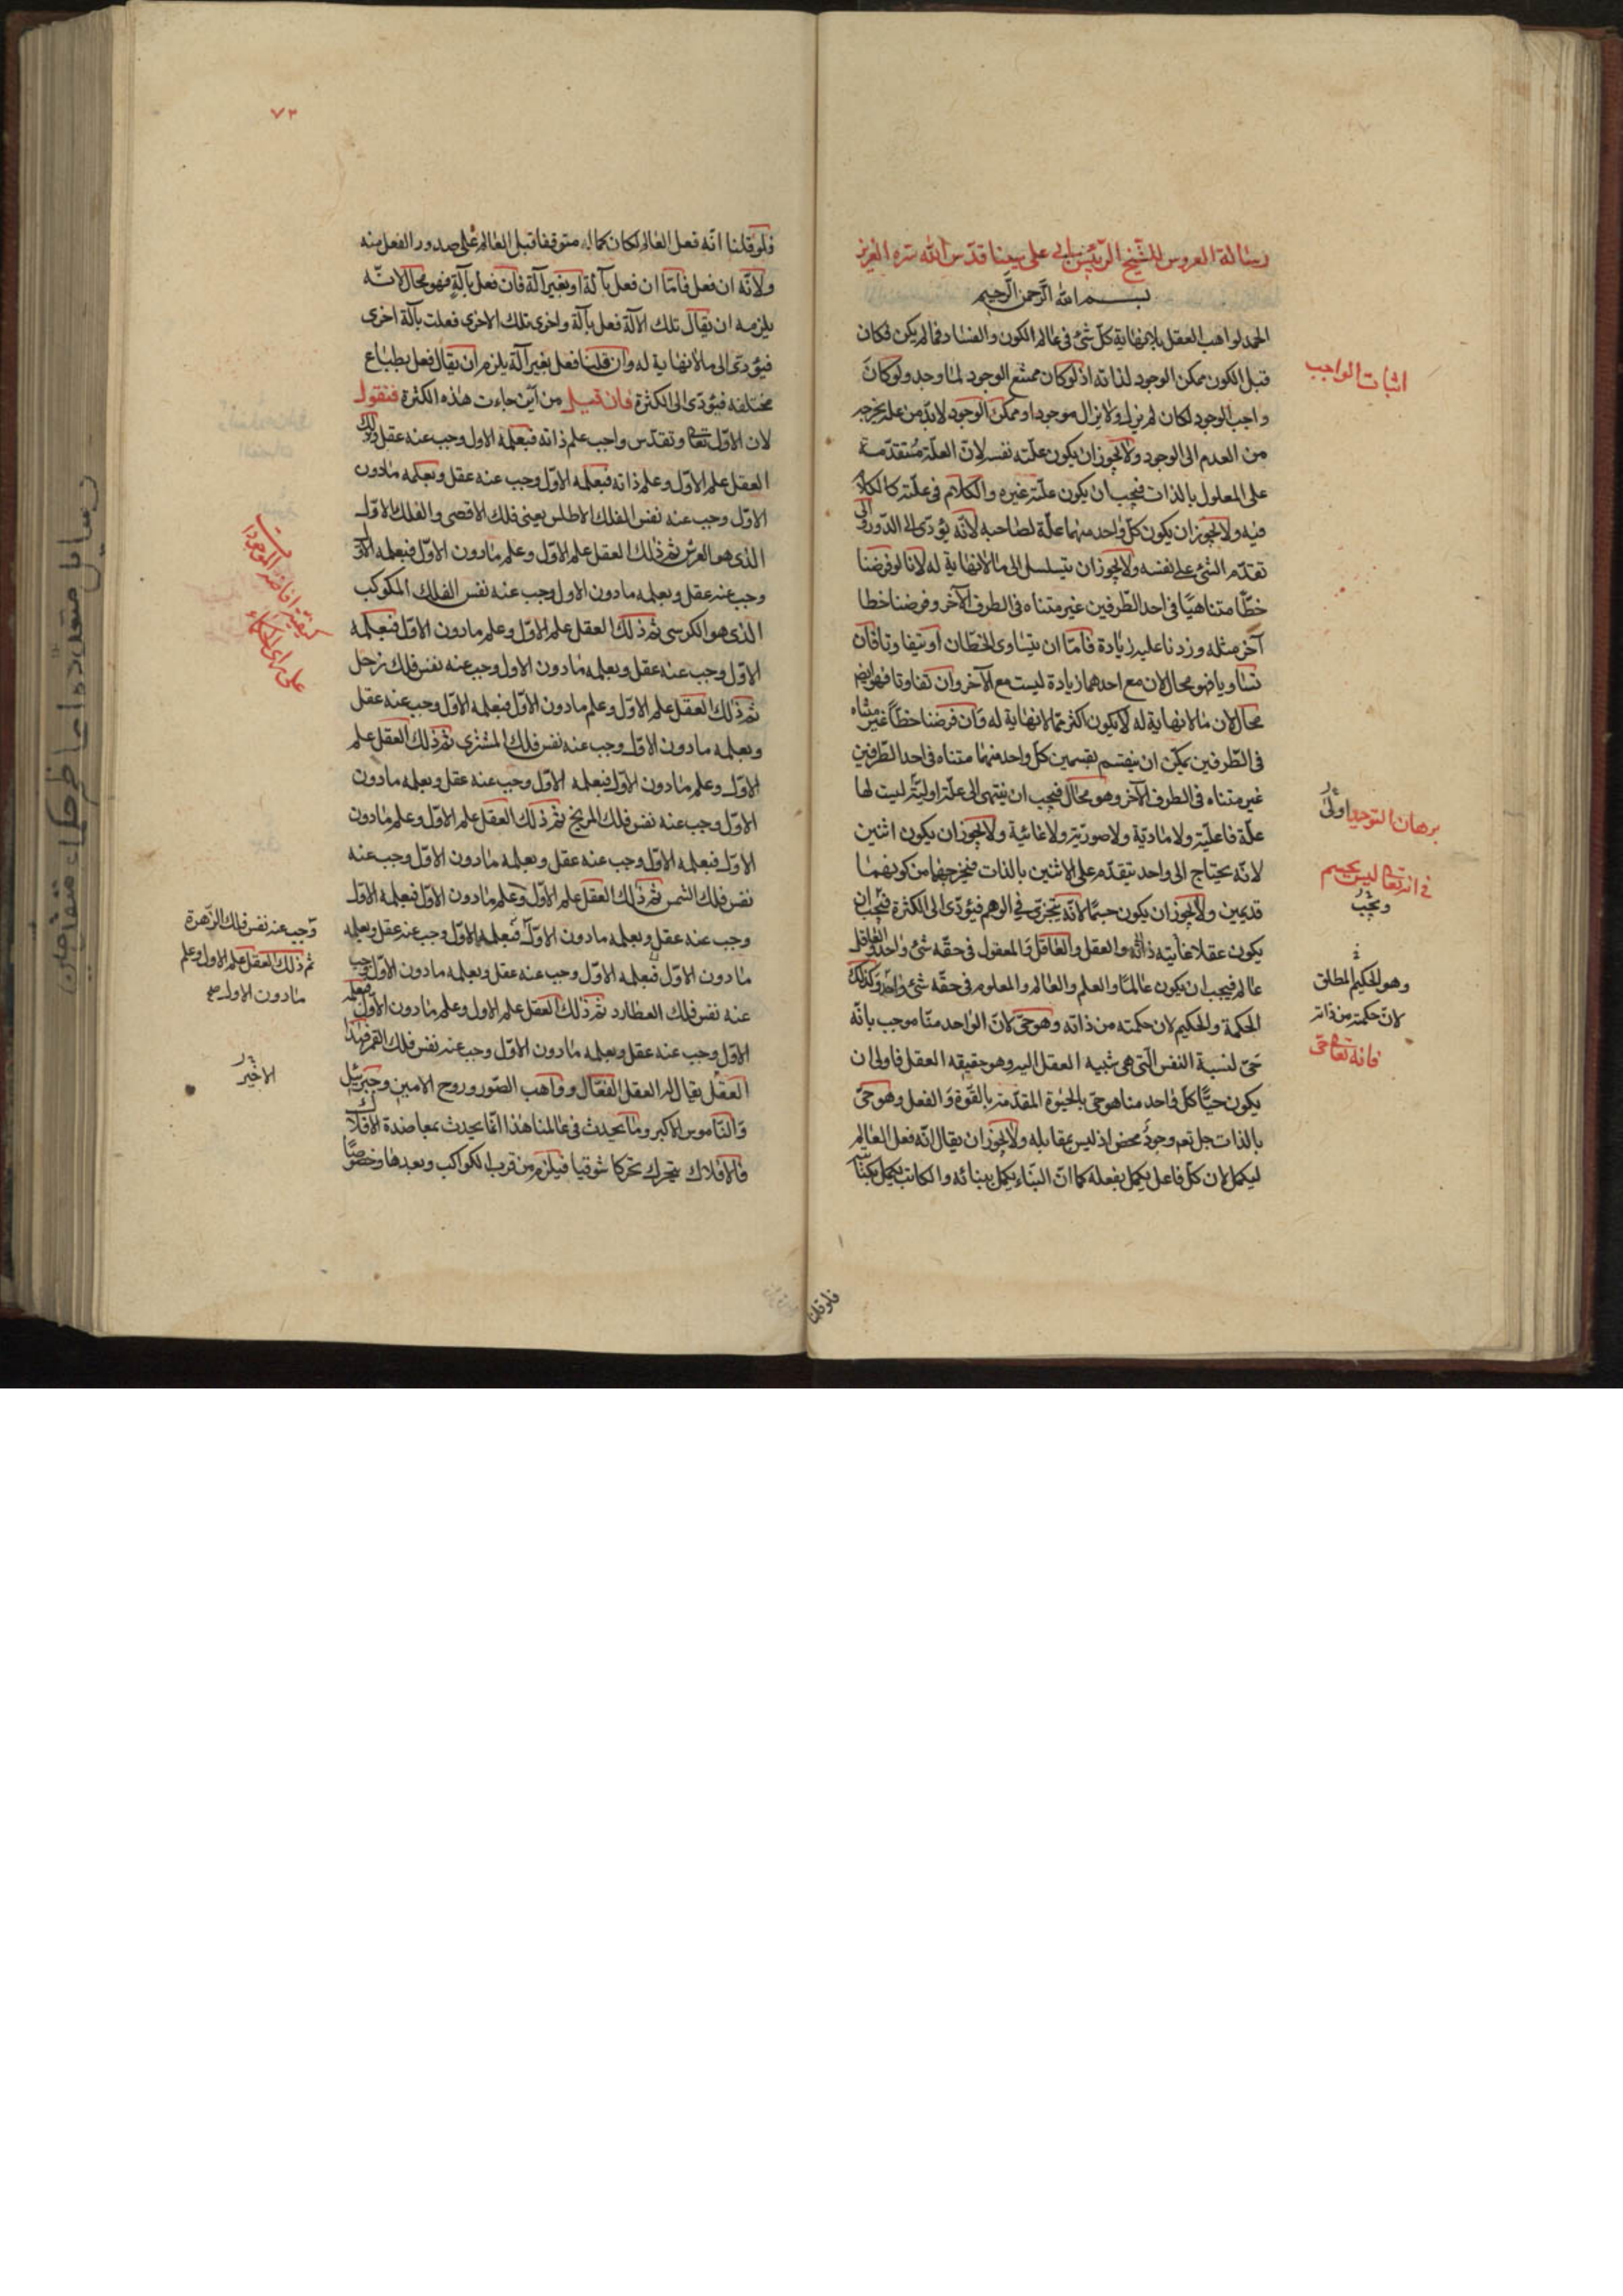 رسالة العروس للشيخ الرئيس ابى على سينا قدس الله سره العزيز
بسم الله الرحمن الرحيم
الحمد لواهب العقل بلا نهاية كل شئ فى عالم الكون والفساد فما لم يكن فكان
قبل الكون ممكن الوجود لذاته اذ لو كان ممتنع الوجود لما وجد ولو كان
واجب الوجود لكان لم يزل ولا يزال موجودا وممكن الوجود لا بد من علة يخرجه
من العدم الى الوجود ولا يجوز ان يكون علته نفسه لان العلة متقدمة
على المعلول بالذات فيجب ان يكون علته غيره والكلام فى علته كالكلام
فيه ولا يجوز ان يكون كل واحد منهما علة لصاحبه لانه يؤدى الى الدور والى
تقدم الشئ على نفسه ولا يجوز ان يتسلسل الى ما لا نهاية له لانا لو فرضنا
خطا متناهيا فى احد الطرفين غير متناه فى الطرف الآخر وفرضنا خطا
آخر مثله وزدنا عليه زيادة فاما ان يتساوى الخطان او يتفاوتا فان
تساويا فهو محال لان مع احدهما زيادة ليست مع الآخر وان تفاوتا فهو ايضا
محال لان ما لا نهاية له لا يكون اكثر مما لا نهاية له وان فرضنا خطا غير متناه
فى الطرفين يمكن ان ينقسم بقسمين كل واحد منهما متناه فى احد الطرفين
غير متناه فى الطرف الآخر وهو محال فيجب ان ينتهى الى علة اولية ليست لها
علة فاعلية ولا مادية ولا صورية ولا غائية ولا يجوز ان يكون اثنين
لانه يحتاج الى واحد يتقدم على الاثنين بالذات فيخرجهما من كونهما
قديمين ولا يجوز ان يكون جسما لانه يتجزى فى الوهم فيؤدى الى الكثرة فيجب ان
يكون عقلا غايته ذاته والعقل والعاقل والمعقول فى حقه شئ واحد والعاقل
عالم فيجب ان يكون عالما والعلم والعالم والمعلوم فى حقه شئ واحد وكذلك
الحكمة والحكيم لان حكمته من ذاته وهو حى لان الواحد منا موجب بانه
حى لنسبة النفس التى هى شبيه العقل اليه وهو حقيقه العقل فاولى ان
يكون حيا كل واحد منا هو حى بالحيوة المقدمة بالقوة والفعل وهو حى
بالذات جل نعم وجود محض اذ ليس بمقابله ولا يجوز ان يقال انه فعل العالم
ليكمل لان كل فاعل يكمل بفعله كما ان البناء يكمل ببنائه والكاتب يكمل بكتابته
اثبات الواجب
برهان التوحيد اولى
فى انه تعالى ليس بجسم
ويجب
وهو الحكيم المطلق
لان حكمته من ذاته
فانه تعالى حى
فلو قلنا
٧٣
فلو قلنا انه فعل العالم لكان كماله متوقفا قبل العالم على صدور الفعل منه
ولانه ان فعل فاما ان فعل بآلة او بغير آلة فان فعل بآلة فهو محال لانه
يلزمه ان يقال تلك الآلة فعل بآلة واخرى تلك الاخرى فعلت بآلة اخرى
فيؤدى الى ما لا نهاية له وان قلنا فعل بغير آلة يلزم ان يقال فعل بطباع
مختلفه فيؤدى الى الكثرة فان قيل من اين جاءت هذه الكثرة فنقول
لان الاول تعالى وتقدس واجب علم ذاته فبعلمه الاول وجب عنه عقل وذلك
العقل علم الاول وعلم ذاته فبعلمه الاول وجب عنه عقل وبعلمه مادون
الاول وجب عنه نفس الفلك الاطلس يعنى فلك الاقصى والفلك الاول
الذى هو العرش ثم ذلك العقل علم الاول وعلم مادون الاول فبعلمه الاول
وجب عنه عقل وبعلمه مادون الاول وجب عنه نفس الفلك المكوكب
الذى هو الكرسى ثم ذلك العقل علم الاول وعلم مادون الاول فبعلمه
الاول وجب عنه عقل وبعلمه مادون الاول وجب عنه نفس فلك زحل
ثم ذلك العقل علم الاول وعلم مادون الاول فبعلمه الاول وجب عنه عقل
وبعلمه مادون الاول وجب عنه نفس فلك المشترى ثم ذلك العقل علم
الاول وعلم مادون الاول فبعلمه الاول وجب عنه عقل وبعلمه مادون
الاول وجب عنه نفس فلك المريخ ثم ذلك العقل علم الاول وعلم مادون
الاول فبعلمه الاول وجب عنه عقل وبعلمه مادون الاول وجب عنه
نفس فلك الشمس ثم ذلك العقل علم الاول وعلم مادون الاول فبعلمه الاول
وجب عنه عقل وبعلمه مادون الاول فبعلمه الاول وجب عنه عقل وبعلمه
مادون الاول فبعلمه الاول وجب عنه عقل وبعلمه مادون الاول وجب
عنه نفس فلك العطارد ثم ذلك العقل علم الاول وعلم مادون الاول فبعلمه
الاول وجب عنه عقل وبعلمه مادون الاول وجب عنه نفس فلك القمر فهذا
العقل يقال له العقل الفعال وواهب الصور وروح الامين وجبرئيل
والناموس الاكبر وما يحدث فى عالمنا هذا انما يحدث بمعاضدة الافلاك
والافلاك يتحرك تحركا شوقيا فيلزم من قرب الكواكب وبعدها وخصوصا
على راى الحكماء
وجب عنه نفس فلك الزهرة
ثم ذلك العقل علم الاول وعلم
مادون الاول صح
الاخير